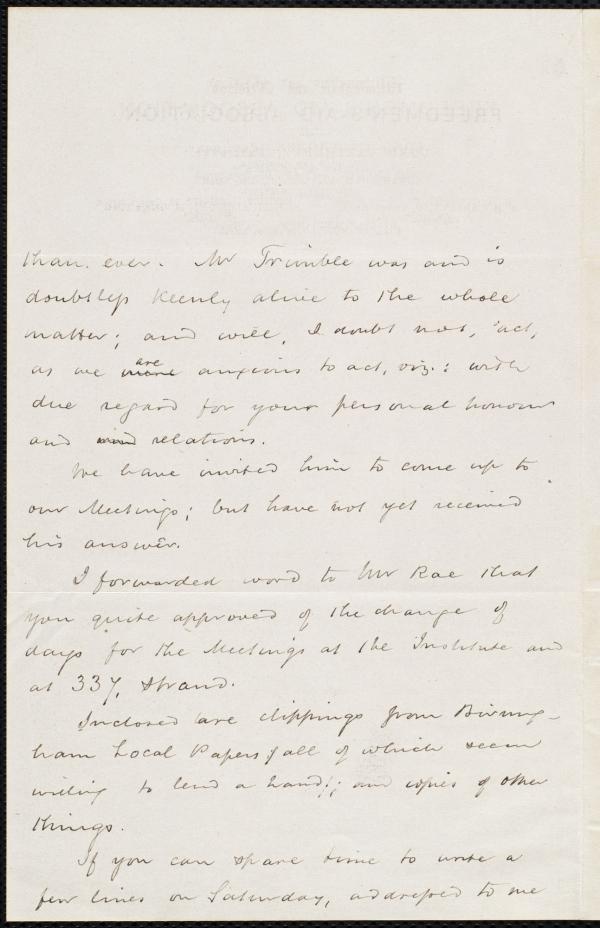 than ever. Mr Trimble was and is
doubtless keenly alive to the whole
matter; and will, I doubt not, act,
as we are anxious to act, viz.: with
due regard for your personal honour
and relations.
We have invited him to come up to
our Meetings; but have not yet received
his answer.
I forwarded word to Mr Rae that
you quite approved of the change of
days for the Meetings at the Institute and
at 337, Strand.
Inclosed are clippings from Birming-
ham Local Papers (all of which seem
willing to lend a hand); and copies of other
things.
If you can spare time to write a
few lines on Saturday, addressed to me
FREEDMEN'S-AID ASSOCIATION